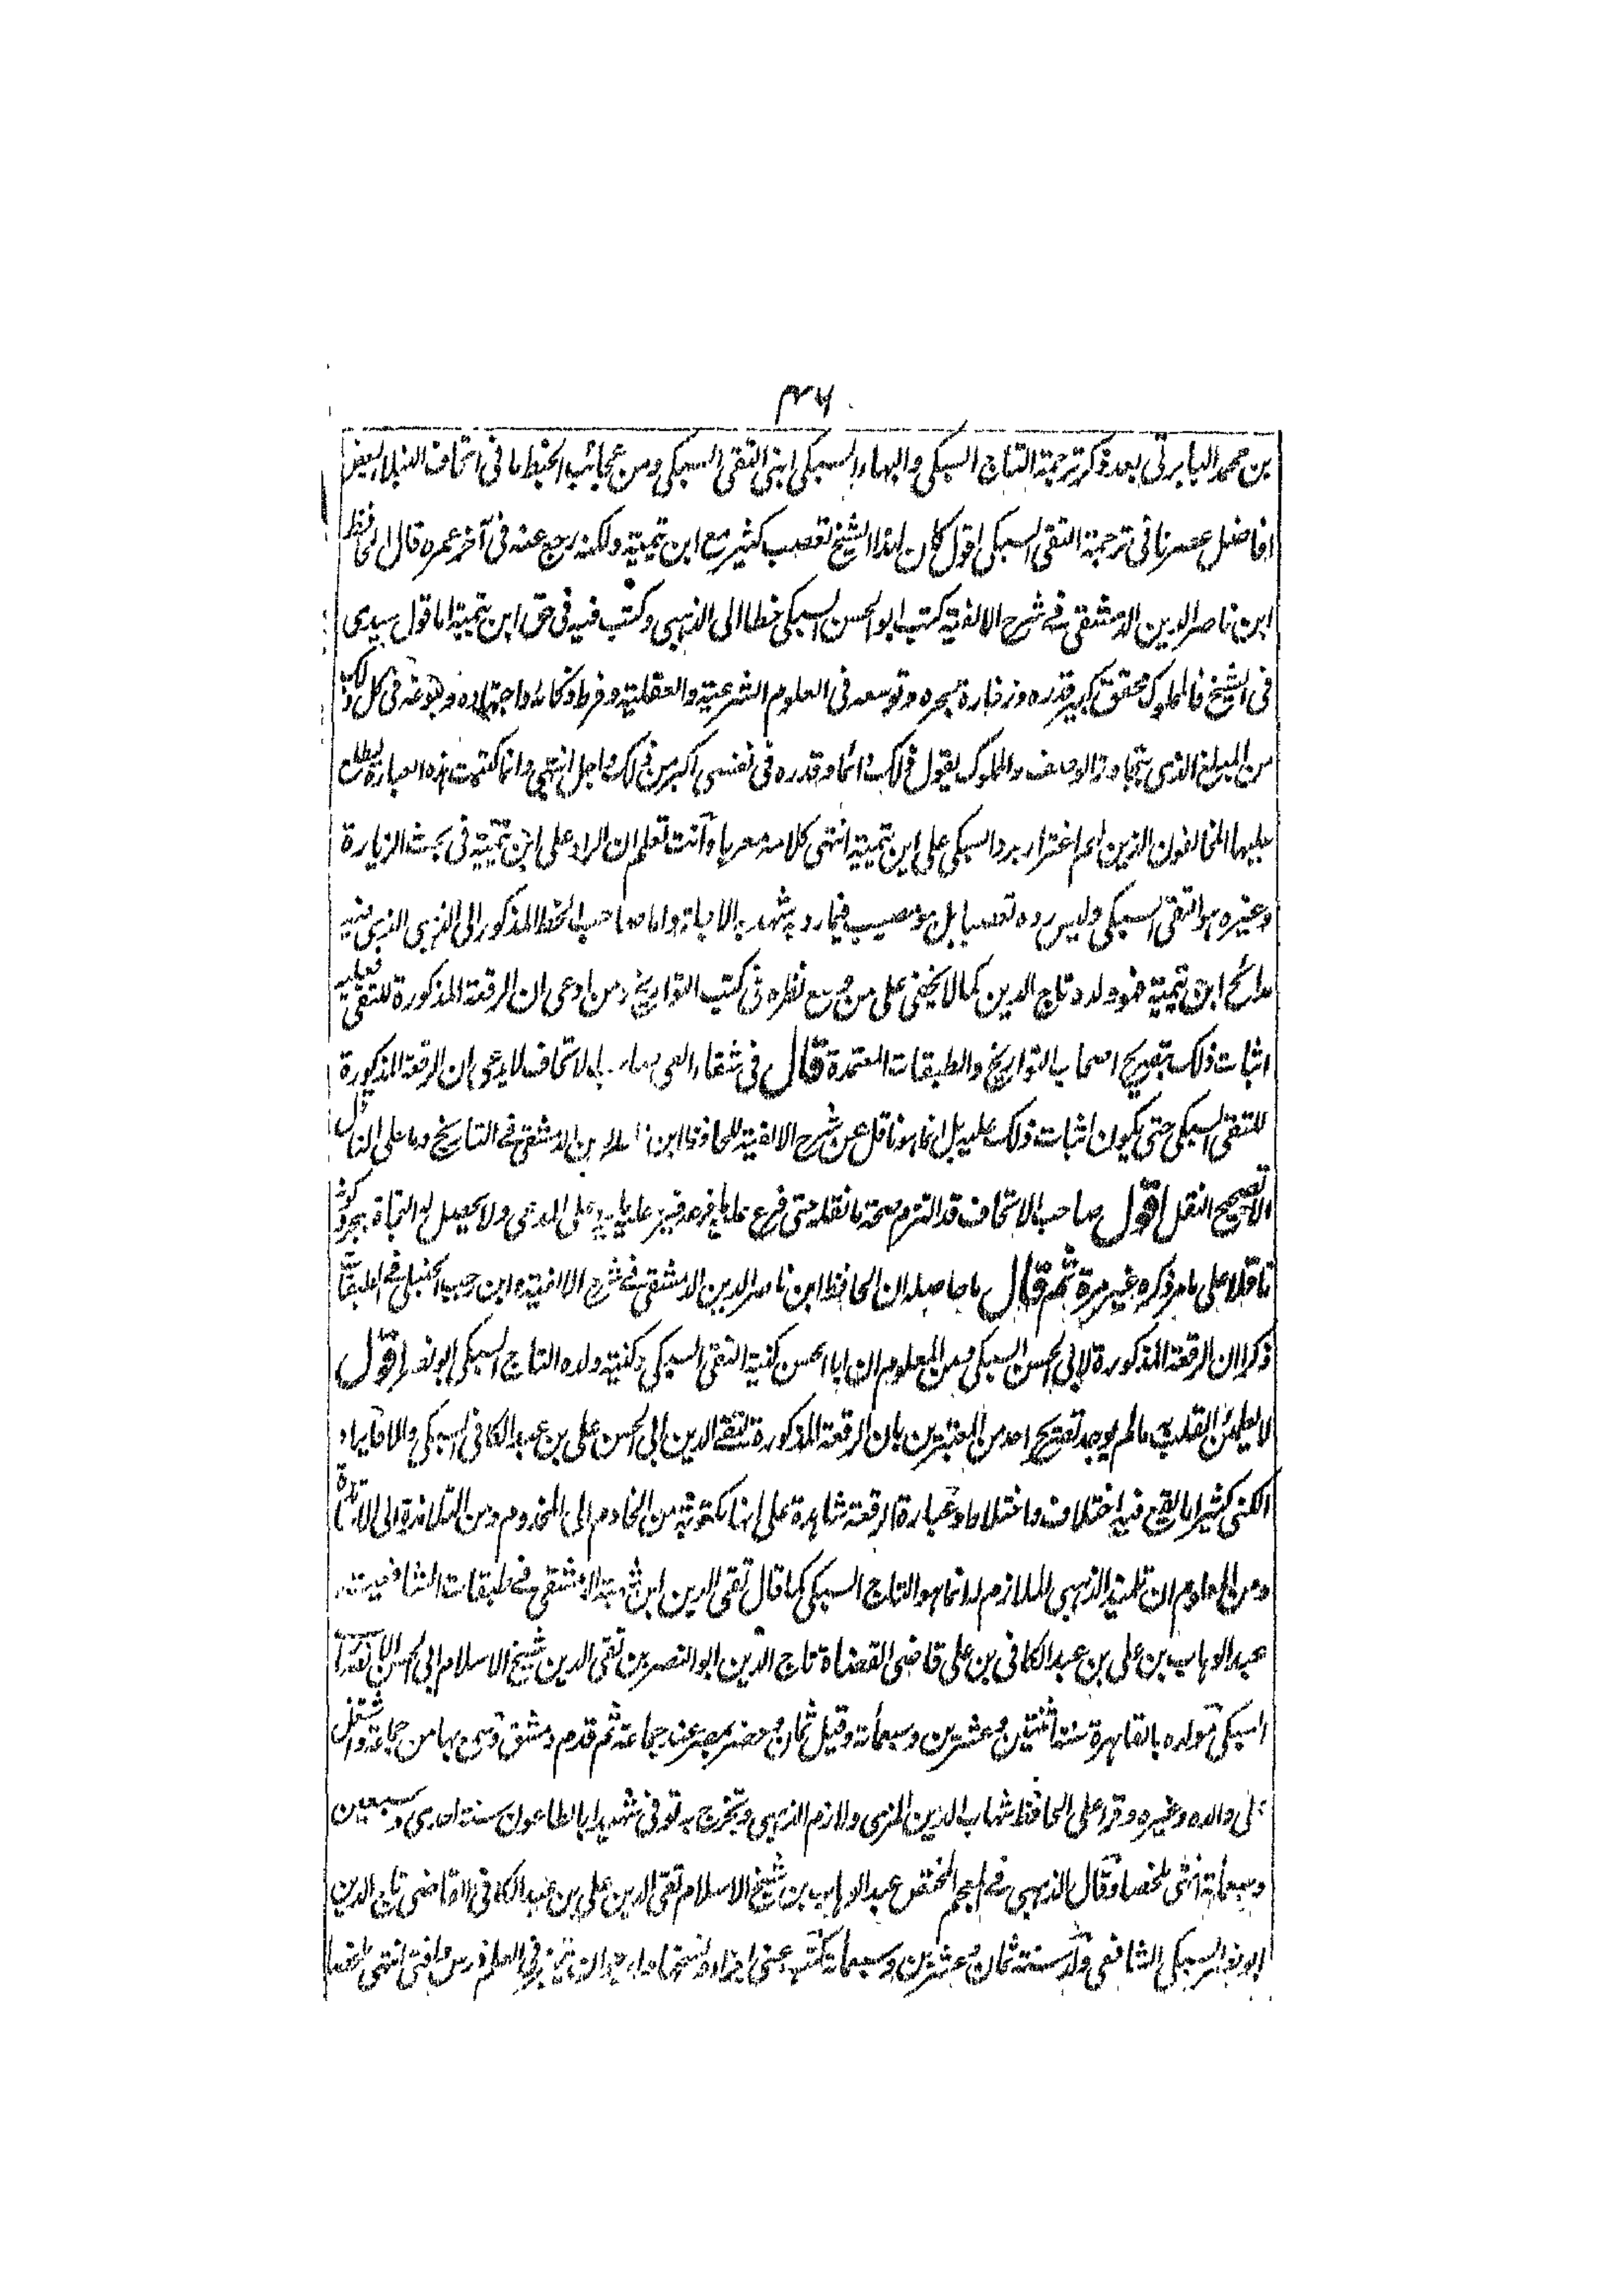 ۳۶
بن محمد البابرتى بعد ذكر ترجمة التاج السبكى والبهاء السبكى ابنى التقى السبكى ومن عجائب الخبط ما فى اتحاف النبلاء لبعض
افاضل عصرنا فى ترجمة التقى السبكى اقول كان لهذا الشيخ تعصب كثير مع ابن تيمية ولكنه رجع عنه فى آخر عمره قال الحافظ
ابن ناصر الدين الدمشقى فى شرح الالفية كتب ابو الحسن السبكى خطا الى الذهبى وكتب فيه فى حق ابن تيمية اما قول سيدى
فى الشيخ فالمملوك محقق كبير قدره وزخارة بحره وتوسعه فى العلوم الشرعية والعقلية وفرط ذكائه واجتهاده وبلوغه فى كل ذلك
من المبلغ الذى يتجاوز الوصف والمملوك يقول ذلك دائما وقدره فى نفسى اكبر من ذلك واجل انتهى وانما كتبت هذه العبارة ليطلع
عليها المخالفون الذين لهم اغترار برد السبكى على ابن تيمية انتهى كلامه معربا وانت تعلم ان الراد على ابن تيمية فى بحث الزيارة
وغيره هو التقى السبكى وليس رده تعصبا بل هو مصيب فيما رد به شهد به الاجلة واما صاحب الخط المذكور الى الذهبى الذى فيه
مدائح ابن تيمية فهو ولده تاج الدين كما لا يخفى على من وسع نظره فى كتب التواريخ ومن ادعى ان الرقعة المذكورة للتقى فعليه
اثبات ذلك بتصريح اصحاب التواريخ والطبقات المعتمدة قال فى شفاء العى صاحب الاتحاف لا يدعى ان الرقعة المذكورة
للتقى السبكى حتى يكون اثبات ذلك عليه بل انما هو ناقل عن شرح الالفية للحافظ ابن ناصر الدين الدمشقى فى التاريخ وما على الناقل
الا تصحيح النقل اقول صاحب الاتحاف قد التزم صحة ما نقله حتى فرع عليه ما فرعه فيرد عليه ما يرد على المدعى ولا يحصل له النجاة بمجرد كونه
ناقلا على ما مر ذكره غير مرة ثم قال ما حاصله ان الحافظ ابن ناصر الدين الدمشقى فى شرح الالفية وابن رجب الحنبلى فى الطبقات
ذكرا ان الرقعة المذكورة لابى الحسن السبكى ومن المعلوم ان ابا الحسن كنية التقى السبكى وكنية ولده التاج السبكى ابو نصر اقول
لا يطمئن القلب به ما لم يوجد تصريح احد من المعتبرين بان الرقعة المذكورة لتقى الدين ابى الحسن على بن عبد الكافى السبكى والا فايراد
الكنى كثيرا ما يقع فيه اختلاف واختلاط وعبارة الرقعة شاهدة على انها مكتوبة من الخادم الى المخدوم ومن التلامذة الى الاساتذة
ومن المعلوم ان تلميذ الذهبى الملازم له انما هو التاج السبكى كما قال تقى الدين ابن شهبة الدمشقى فى طبقات الشافعية
عبد الوهاب بن على بن عبد الكافى بن على قاضى القضاة تاج الدين ابو النصر بن تقى الدين شيخ الاسلام ابى الحسن الانصارى
السبكى مولده بالقاهرة سنة اثنتين وعشرين وسبعمائة وقيل ثمان وحضر بمصر عند جماعة ثم قدم دمشق وسمع بها من جماعة واشتغل
على والده وغيره وقرأ على الحافظ شهاب الدين المزى ولازم الذهبى وتخرج به توفى شهيدا بالطاعون سنة احدى وسبعين
وسبعمائة انتهى ملخصا وقال الذهبى فى المعجم المختص عبد الوهاب بن شيخ الاسلام تقى الدين على بن عبد الكافى القاضى تاج الدين
ابو نصر السبكى الشافعى ولد سنة ثمان وعشرين وسبعمائة كتب عنى اجزاء ونسخها وارجو ان يتميز فى العلم درس وافتى انتهى ملخصا